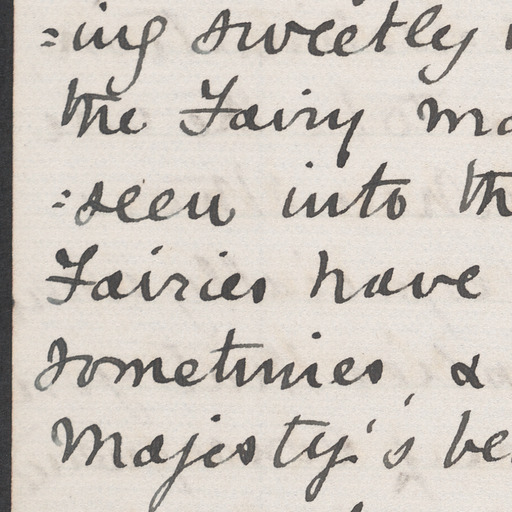 =ing sweetly
the Fairy ma
:seen into th
Fairies have
sometimes, &
Majesty's be